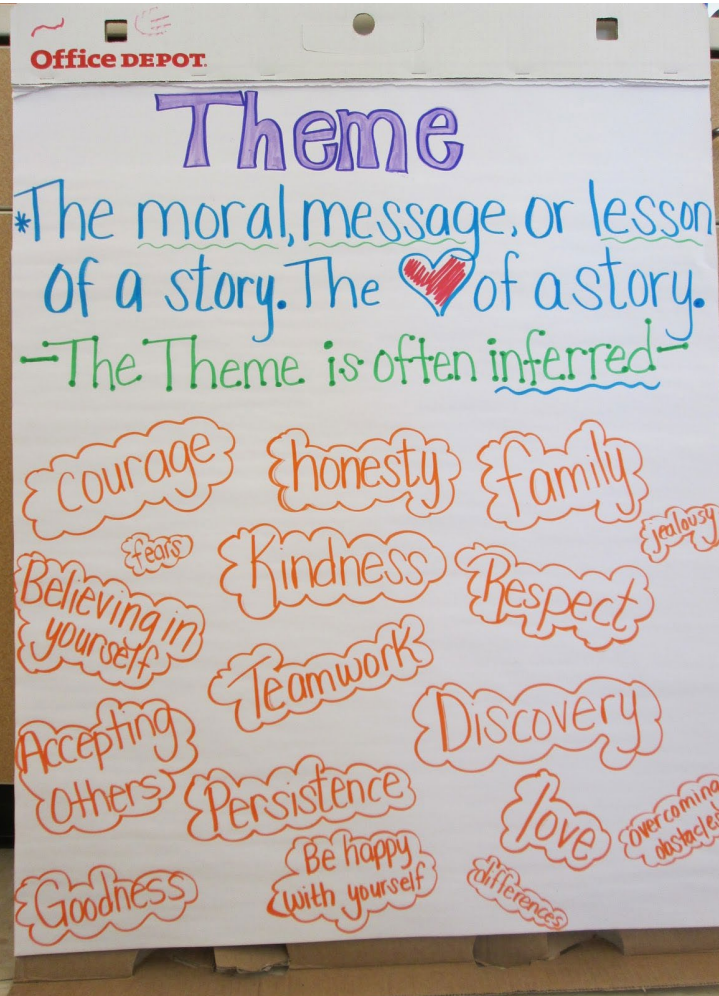 Office DEPOT.
Theme
*The moral, message, or lesson
of a story. The ❤ of a story.
-The Theme is often inferred-
courage
honesty
family
jealousy
fears
Kindness
Believing in
yourself
Respect
Teamwork
Accepting
Others
Discovery
Persistence
love
overcoming
obstacles
Be happy
with yourself
Goodness
differences